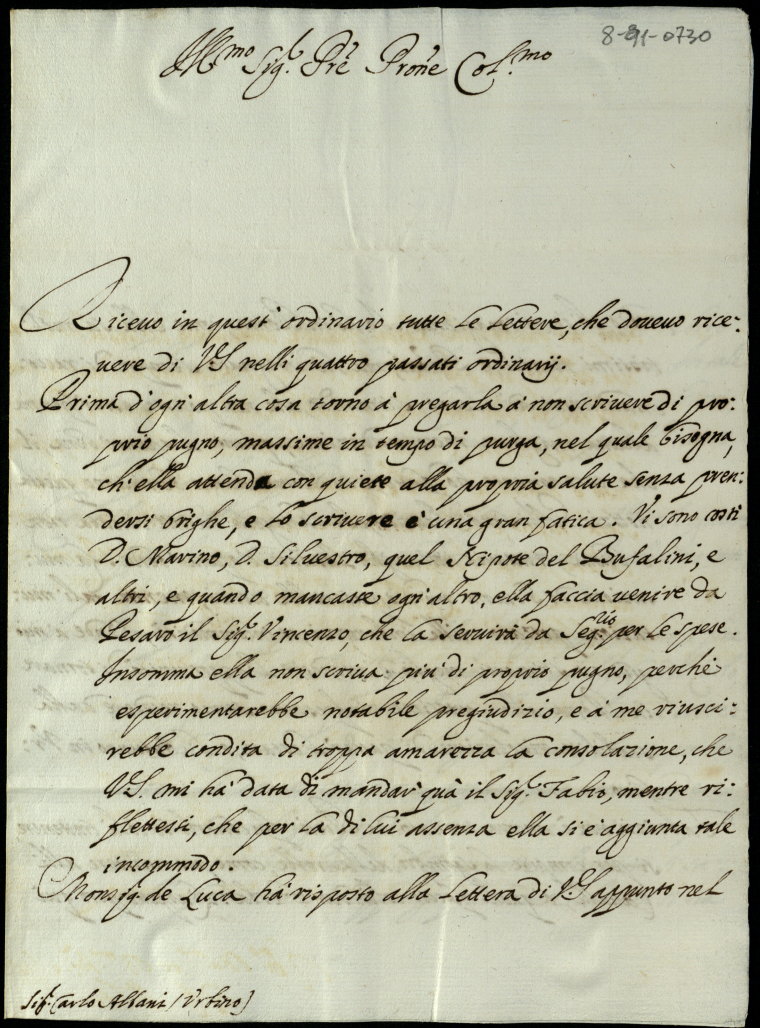 8-91-0730
Ill.mo Sig.r Pre Prone Col.mo
Riceuo in quest' ordinario tutte le lettere, che doueuo rice-
uere di V.S. nelli quattro passati ordinarij.
Prima d'ogn'altra cosa torno à pregarla à non scriuere di pro-
prio pugno, massime in tempo di purga, nel quale bisogna,
ch'ella attenda con quiete alla propria salute senza pren-
dersi brighe, e lo scriuere è una gran fatica. Vi sono costì
D. Marino, D. Siluestro, quel Nipote del Bufalini, e
altri, e quando mancasse ogn'altro, ella faccia uenire da
Pesaro il Sig.r Vincenzo, che la seruirà da Seg.rio per le spese.
Insomma ella non scriua più di proprio pugno, perché
esperimentarebbe notabile pregiudizio, e à me riusci-
rebbe condita di troppa amarezza la consolazione, che
V.S. mi hà data di mandar quà il Sig.r Fabio, mentre ri-
flettessi, che per la di lui assenza ella si è aggiunta tale
incommodo.
Monsig.r de Luca hà risposto alla lettera di V.S. appunto nel
Sig.r Carlo Albani (Urbino)